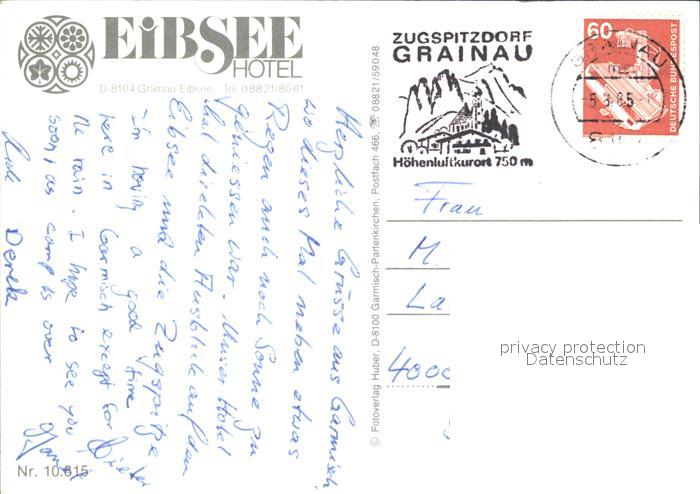 EiBSEE
HOTEL
D-8104 Grainau-Eibsee Tel. 08821/8081
ZUGSPITZDORF
GRAINAU
Höhenluftkurort 750 m
60
DEUTSCHE BUNDESPOST
GRAINAU
-5.8.85
Herzliche Grüsse aus Garmisch
wo dieses Mal neben etwas
Regen auch noch Sonne zu
geniessen war. Unser Hotel
hat direkten Ausblick auf den
Eibsee und die Zugspitze
I'm having a good time
here in Garmisch except for
the rain. I hope to see you
soon, as camp is over
Love Derek
© Fotoverlag Huber, D-8100 Garmisch-Partenkirchen, Postfach 466, ☎ 08821/59048
Frau
M.
La
4000
privacy protection
Datenschutz
Nr. 10.615